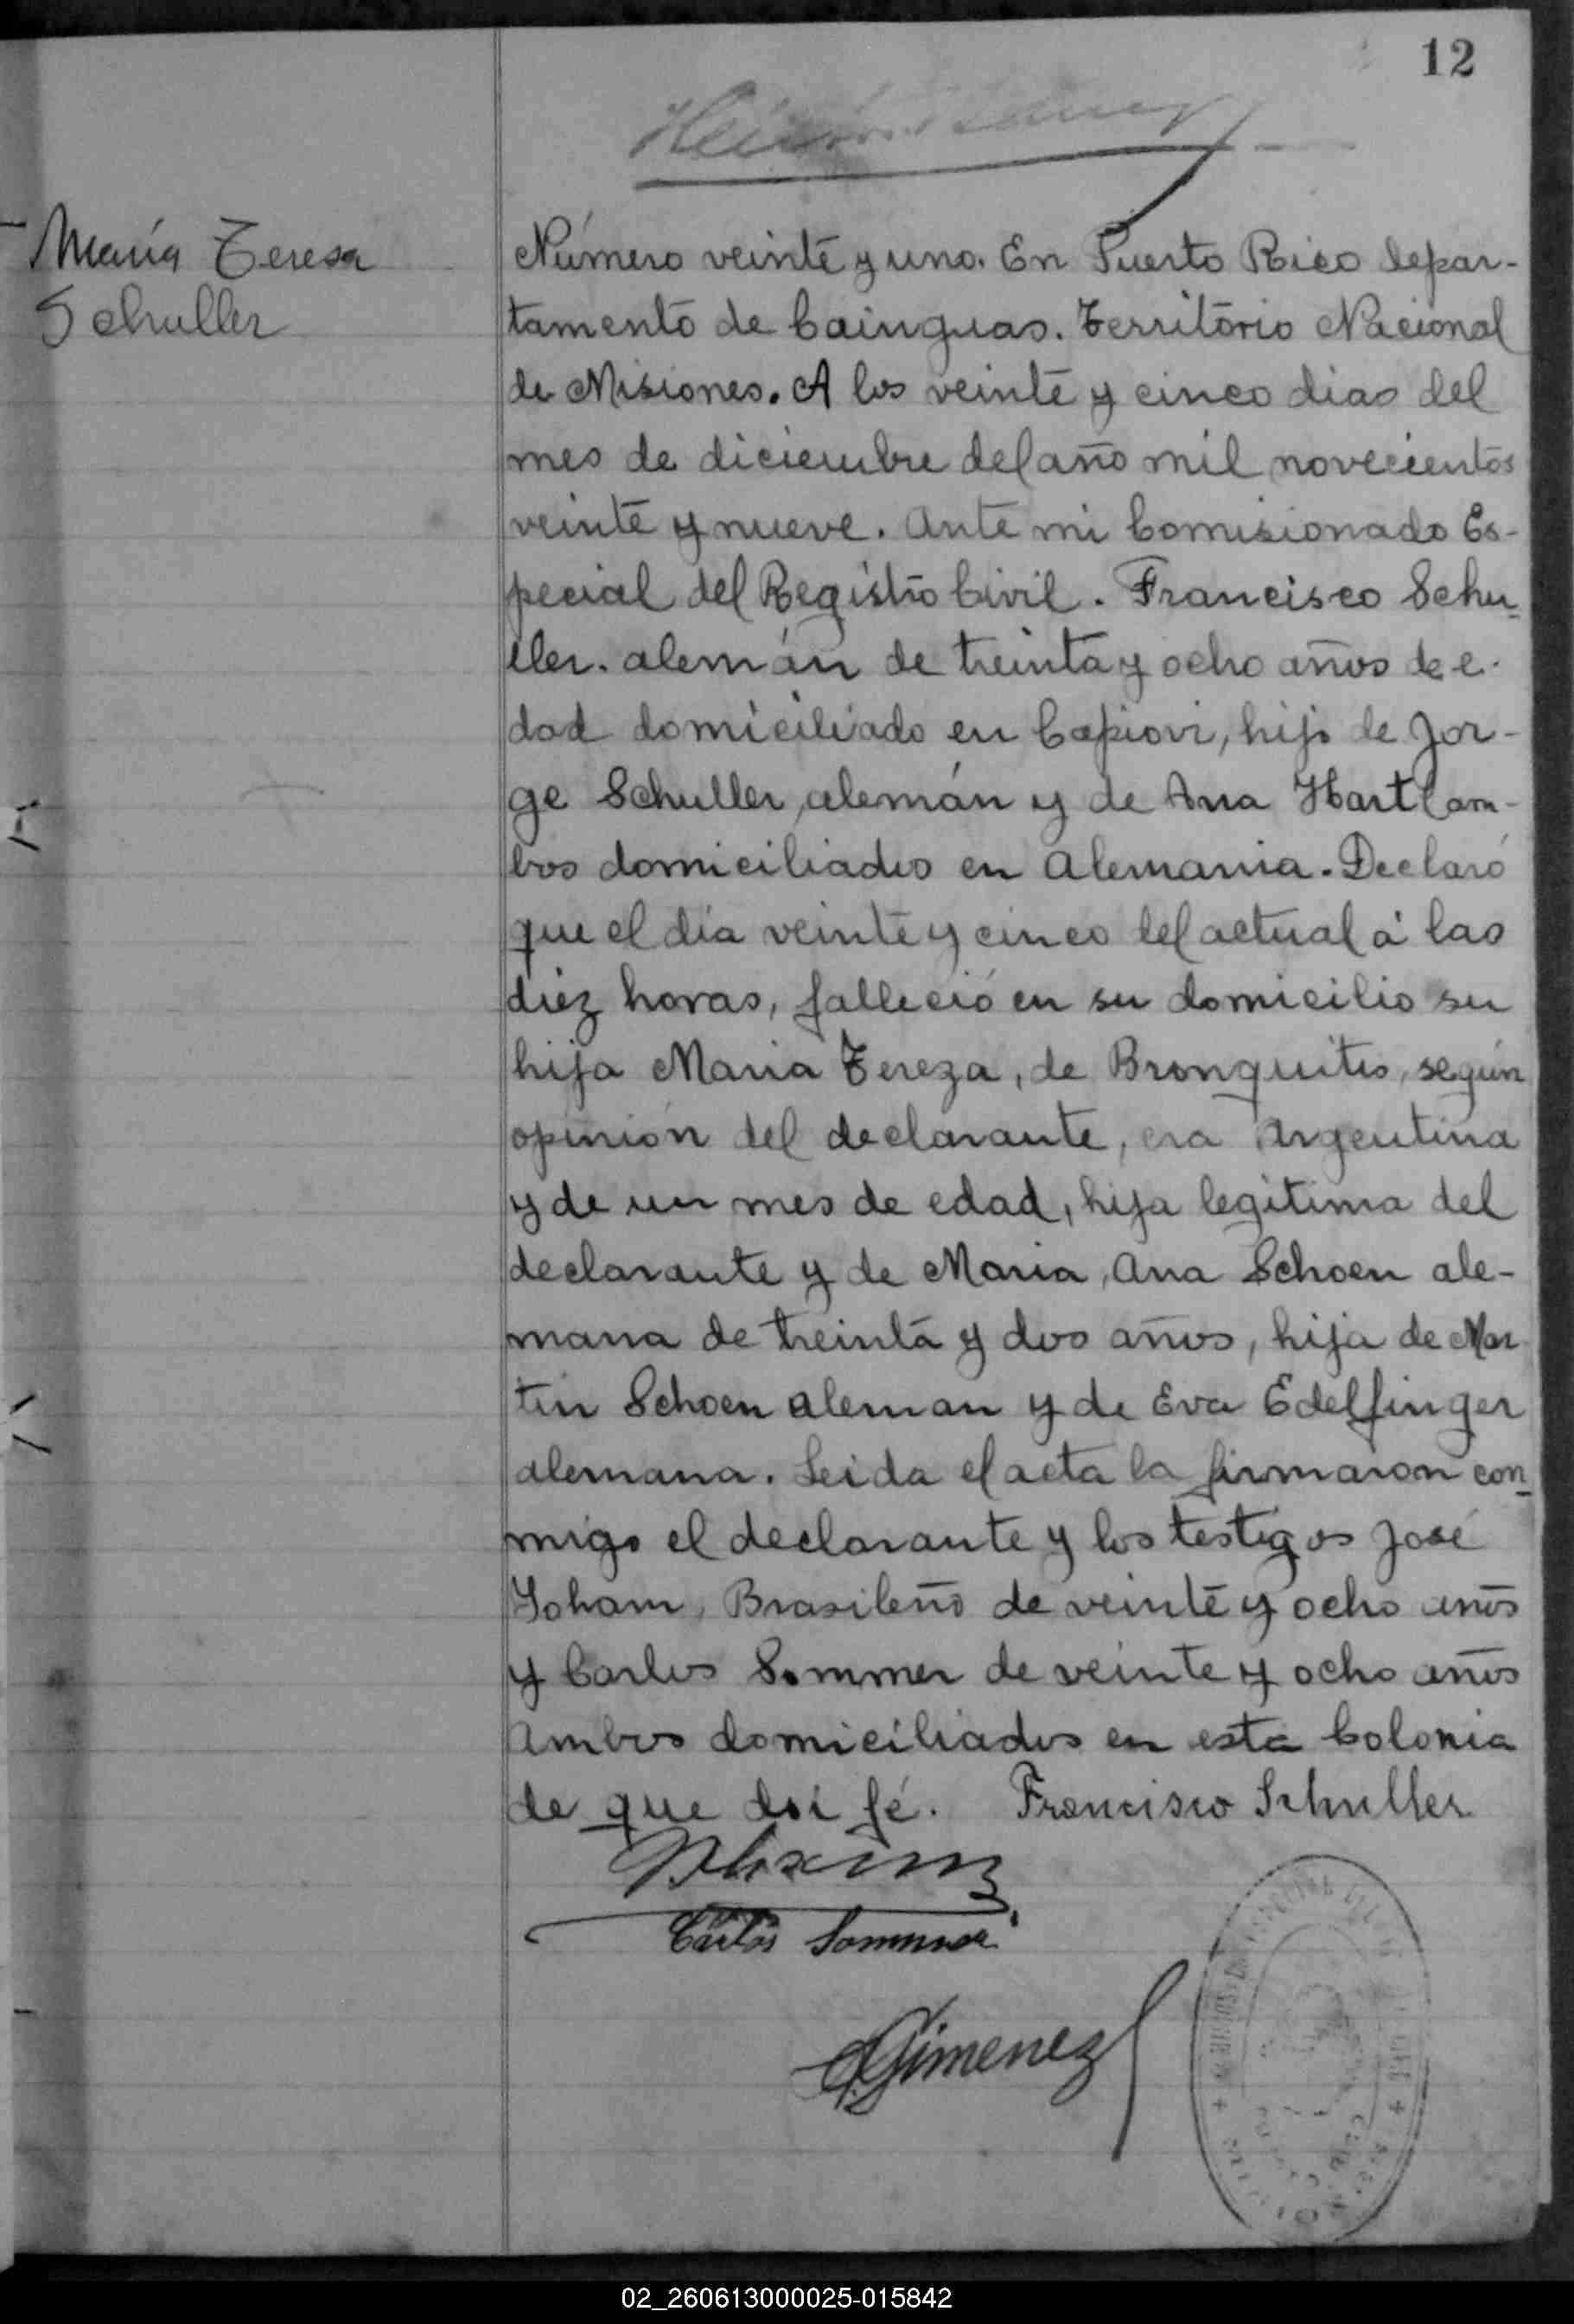 12
María Teresa
Schuller
Número veinte y uno. En Puerto Rico depar-
tamento de Cainguas. Territorio Nacional
de Misiones. A los veinte y cinco dias del
mes de diciembre del año mil novecientos
veinte y nueve. Ante mi Comisionado Es-
pecial del Registro Civil. Francisco Schu-
ller. alemán de treinta y ocho años de e-
dad domiciliado en Capiovi, hijo de Jor-
ge Schuller, alemán y de Ana Hart(am-
bos domiciliados en Alemania. Declaró
que el día veinte y cinco del actual á las
diez horas, falleció en su domicilio su
hija Maria Tereza, de Bronquitis, según
opinión del declarante, era Argentina
y de un mes de edad, hija legitima del
declarante y de Maria Ana Schoen ale-
mana de treinta y dos años, hija de Mar
tin Schoen aleman y de Eva Edelfinger
alemana. Leida el acta la firmaron con-
migo el declarante y los testigos José
Yoham, Brasileño de veinte y ocho años
y Carlos Sommer de veinte y ocho años
Ambos domiciliados en esta Colonia
de que doi fé. Francisco Schuller
Carlos Sommer
Gimenez
02_260613000025-015842